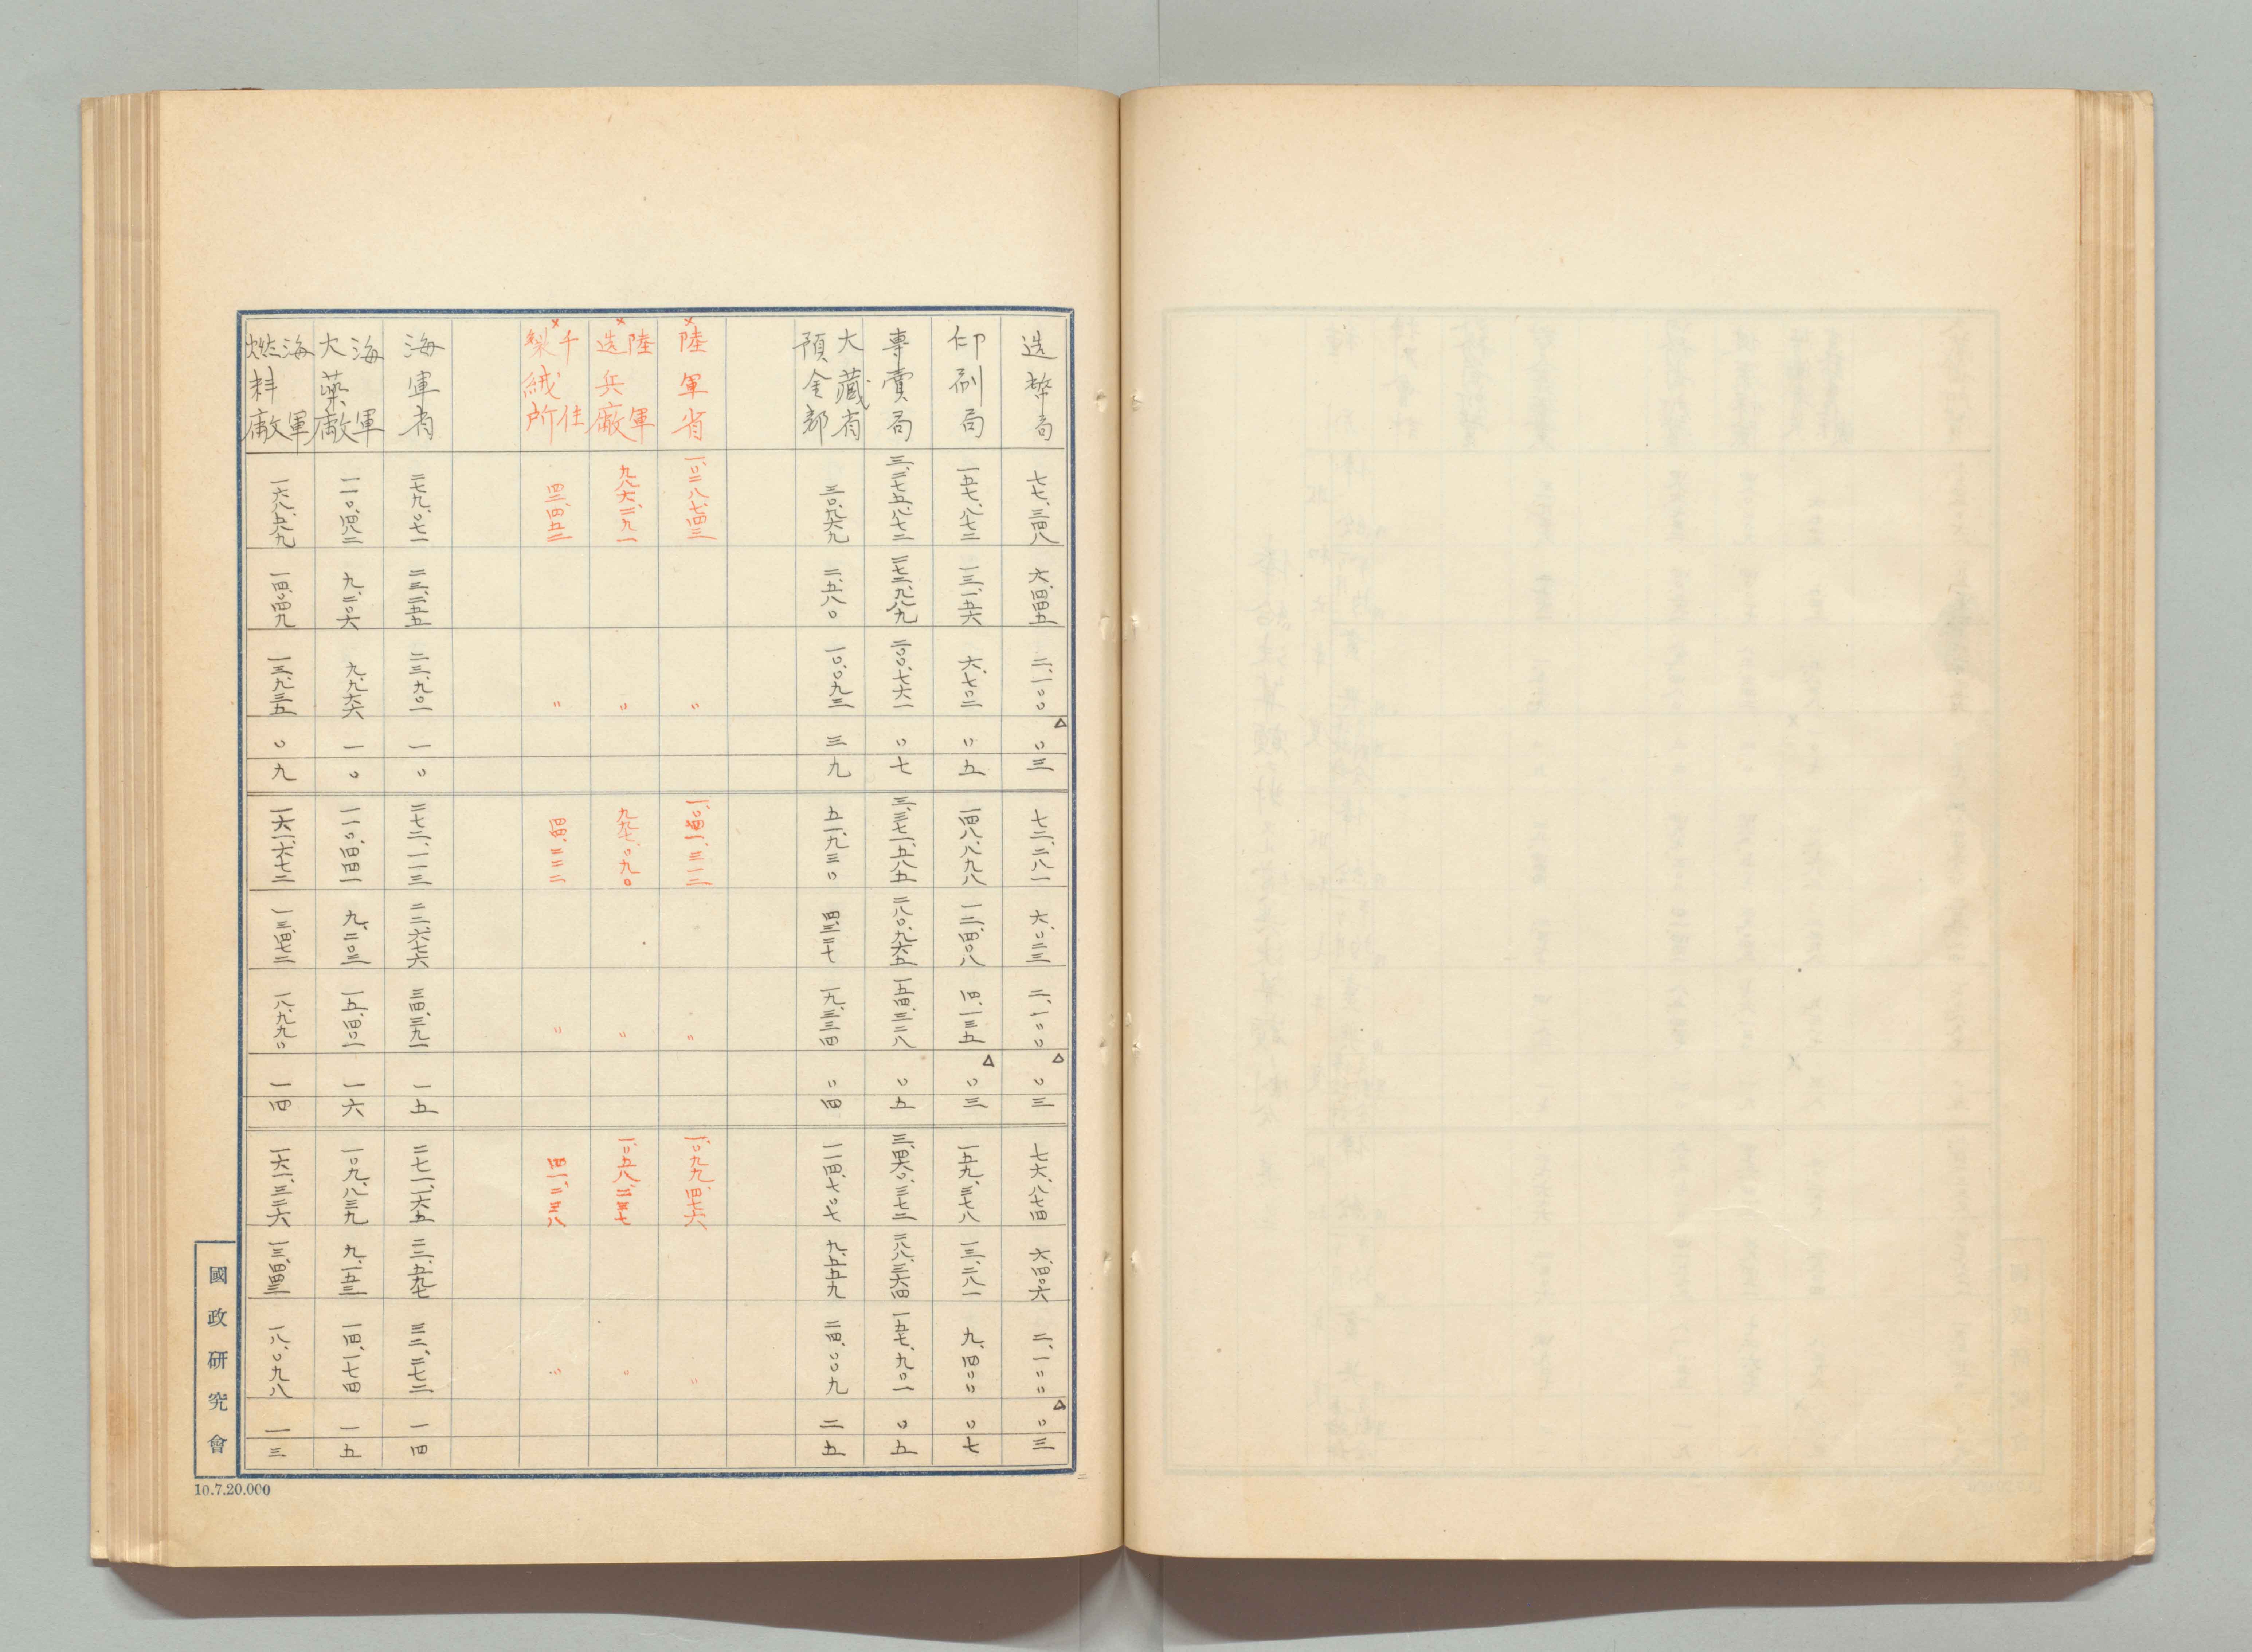 造幣局 七七、三四八 六、四四五 二、一〇〇 △〇三 七二、二八一 六、〇二三 二、一〇〇 △〇三 七六、八七四 六、四〇六 二、一〇〇 △〇三
印刷局 一五七、八七三 一三、一五六 六、七〇二 〇五 一四八、八九八 一二、四〇八 四、一三五 △〇三 一五九、三七八 一三、二八一 九、四〇〇 〇七
專賣局 三、二七五、八七二 二七二、九八九 二〇〇、七六一 〇七 三、三七一、五八五 二八〇、九六五 一五四、三二八 〇五 三、四六〇、三七二 二八八、三六四 一五七、九〇一 〇五
大藏省預金部 三〇、九六九 二、五八〇 一〇、〇九三 三九 五一、九三〇 四、三二七 一九、三三四 〇四 一一四、七〇七 九、五五九 二四、〇〇九 二五
×陸軍省 一、〇二八、七四三 〃 一、〇四一、三一二 〃 一、〇九九、四七六 〃
×陸軍造兵廠 九八六、二九一 〃 九九七、〇九〇 〃 一、〇五八、二三七 〃
×千住製絨所 四二、四五二 〃 四四、二二二 〃 四一、二三八 〃
海軍省 二七九、〇七一 二三、二五五 二三、九〇一 一〇 二七二、一一三 二二、六七六 三四、三九一 一五 二七一、一六五 二二、五九七 三二、二七二 一四
海軍火藥廠 一一〇、四八二 九、二〇六 九、九六六 一〇 一一〇、四四一 九、二〇三 一五、四〇一 一六 一〇九、八三九 九、一五三 一四、一七四 一五
海軍燃料廠 一六八、五八九 一四、〇四九 一三、九三五 〇九 一六一、六七二 一三、四七二 一八、九九〇 一四 一六一、三二六 一三、四四三 一八、〇九八 一三
國政研究會
10.7.20.000
二